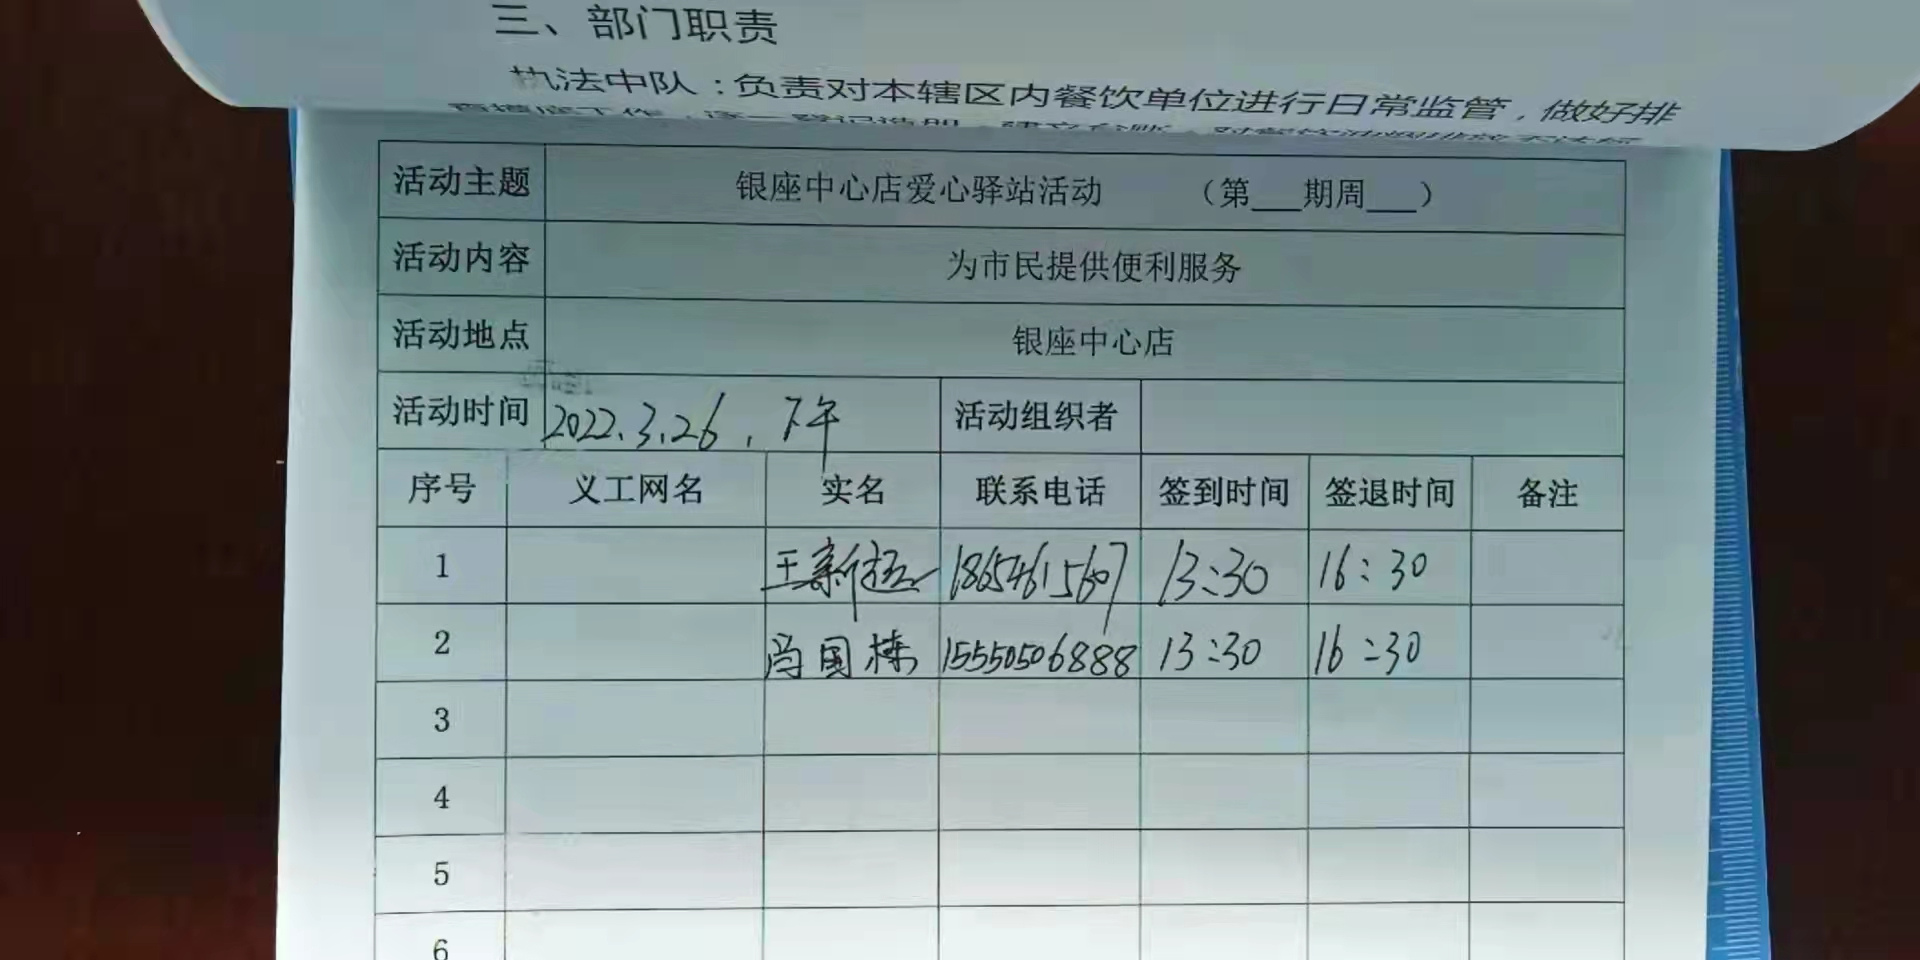 三、部门职责
执法中队：负责对本辖区内餐饮单位进行日常监管，做好排
活动主题 银座中心店爱心驿站活动 （第___期周___）
活动内容 为市民提供便利服务
活动地点 银座中心店
活动时间 2022.3.26.下午 活动组织者
序号 义工网名 实名 联系电话 签到时间 签退时间 备注
1 王新 13:30 16:30
2 国栋 15550506888 13:30 16:30
3
4
5
6